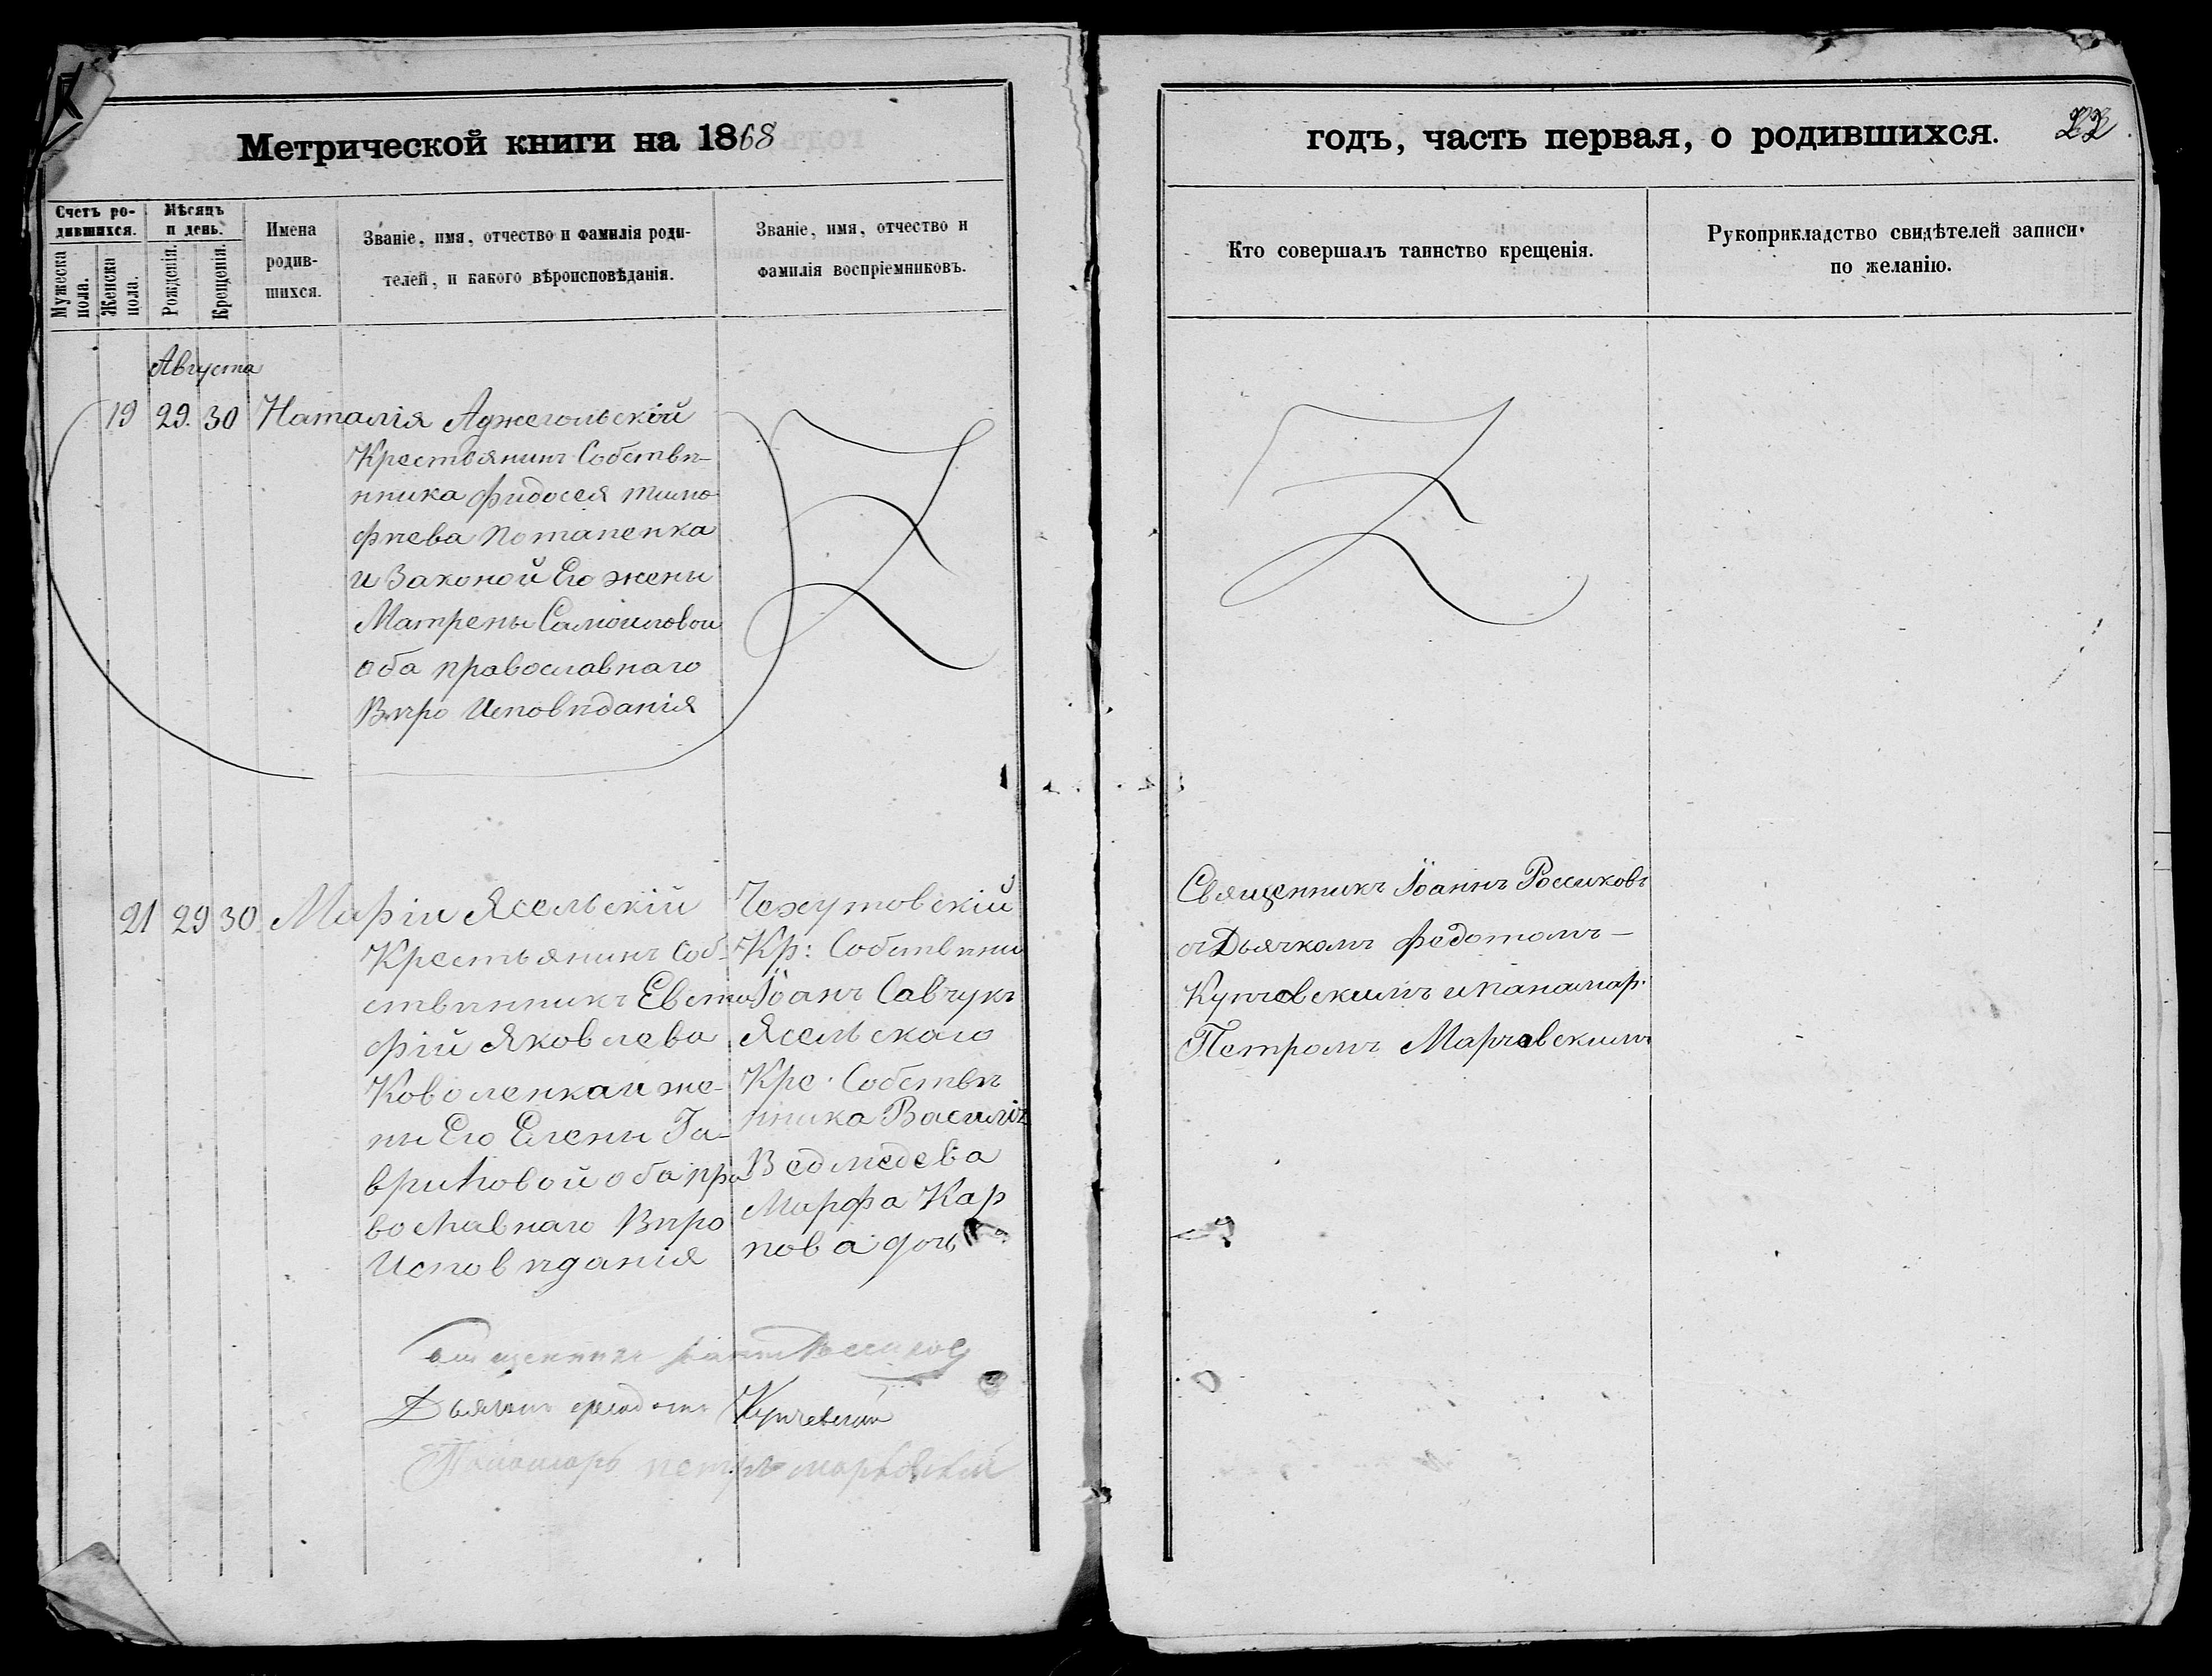 Метрической книги на 1868
годъ, часть первая, о родившихся.
22
Счетъ ро-
дившихся.
Мѣсяцъ
и день.
Мужеска
пола.
Женска
пола.
Рожденія.
Крещенія.
Имена
родив-
шихся.
Званіе, имя, отчество и фамилія роди-
телей, и какого вѣроисповѣданія.
Званіе, имя, отчество и
фамилія воспріемниковъ.
Кто совершалъ таинство крещенія.
Рукоприкладство свидѣтелей записи
по желанію.
Августа
19 29. 30 Наталія Аджегольской
Крестьянинъ Собствѣ-
нника Фидосея Тимо
фѣева Потапенка
и Законой Его жены
Матрены Самоиловои
оба православнаго
Вѣро Исповѣданія
21 29 30 Маріи Ясельскій
Крестьянинъ Соб-
ствѣнникъ Евста
фій Яковлева
Коволенка и же-
ны Его Елены Га-
вриловой оба пра
вославнаго Вѣро
Исповѣданія
Чехутовскій
Кр: Собствѣнн
Іоанъ Савчукъ
Ясельскаго
Кре. Собствѣ
нника Василія
Ведмедева
Марфа Кар
пова дочь
Священникъ Іоаннъ Россиковъ
съ Дьячкомъ Федотомъ-
Купчевскимъ и панамар.
Петромъ Марчевскимъ
Священникъ Іоаннъ Россиковъ
Дьячокъ Федотъ Купчевскій
Панамарь Петръ Марчевскій